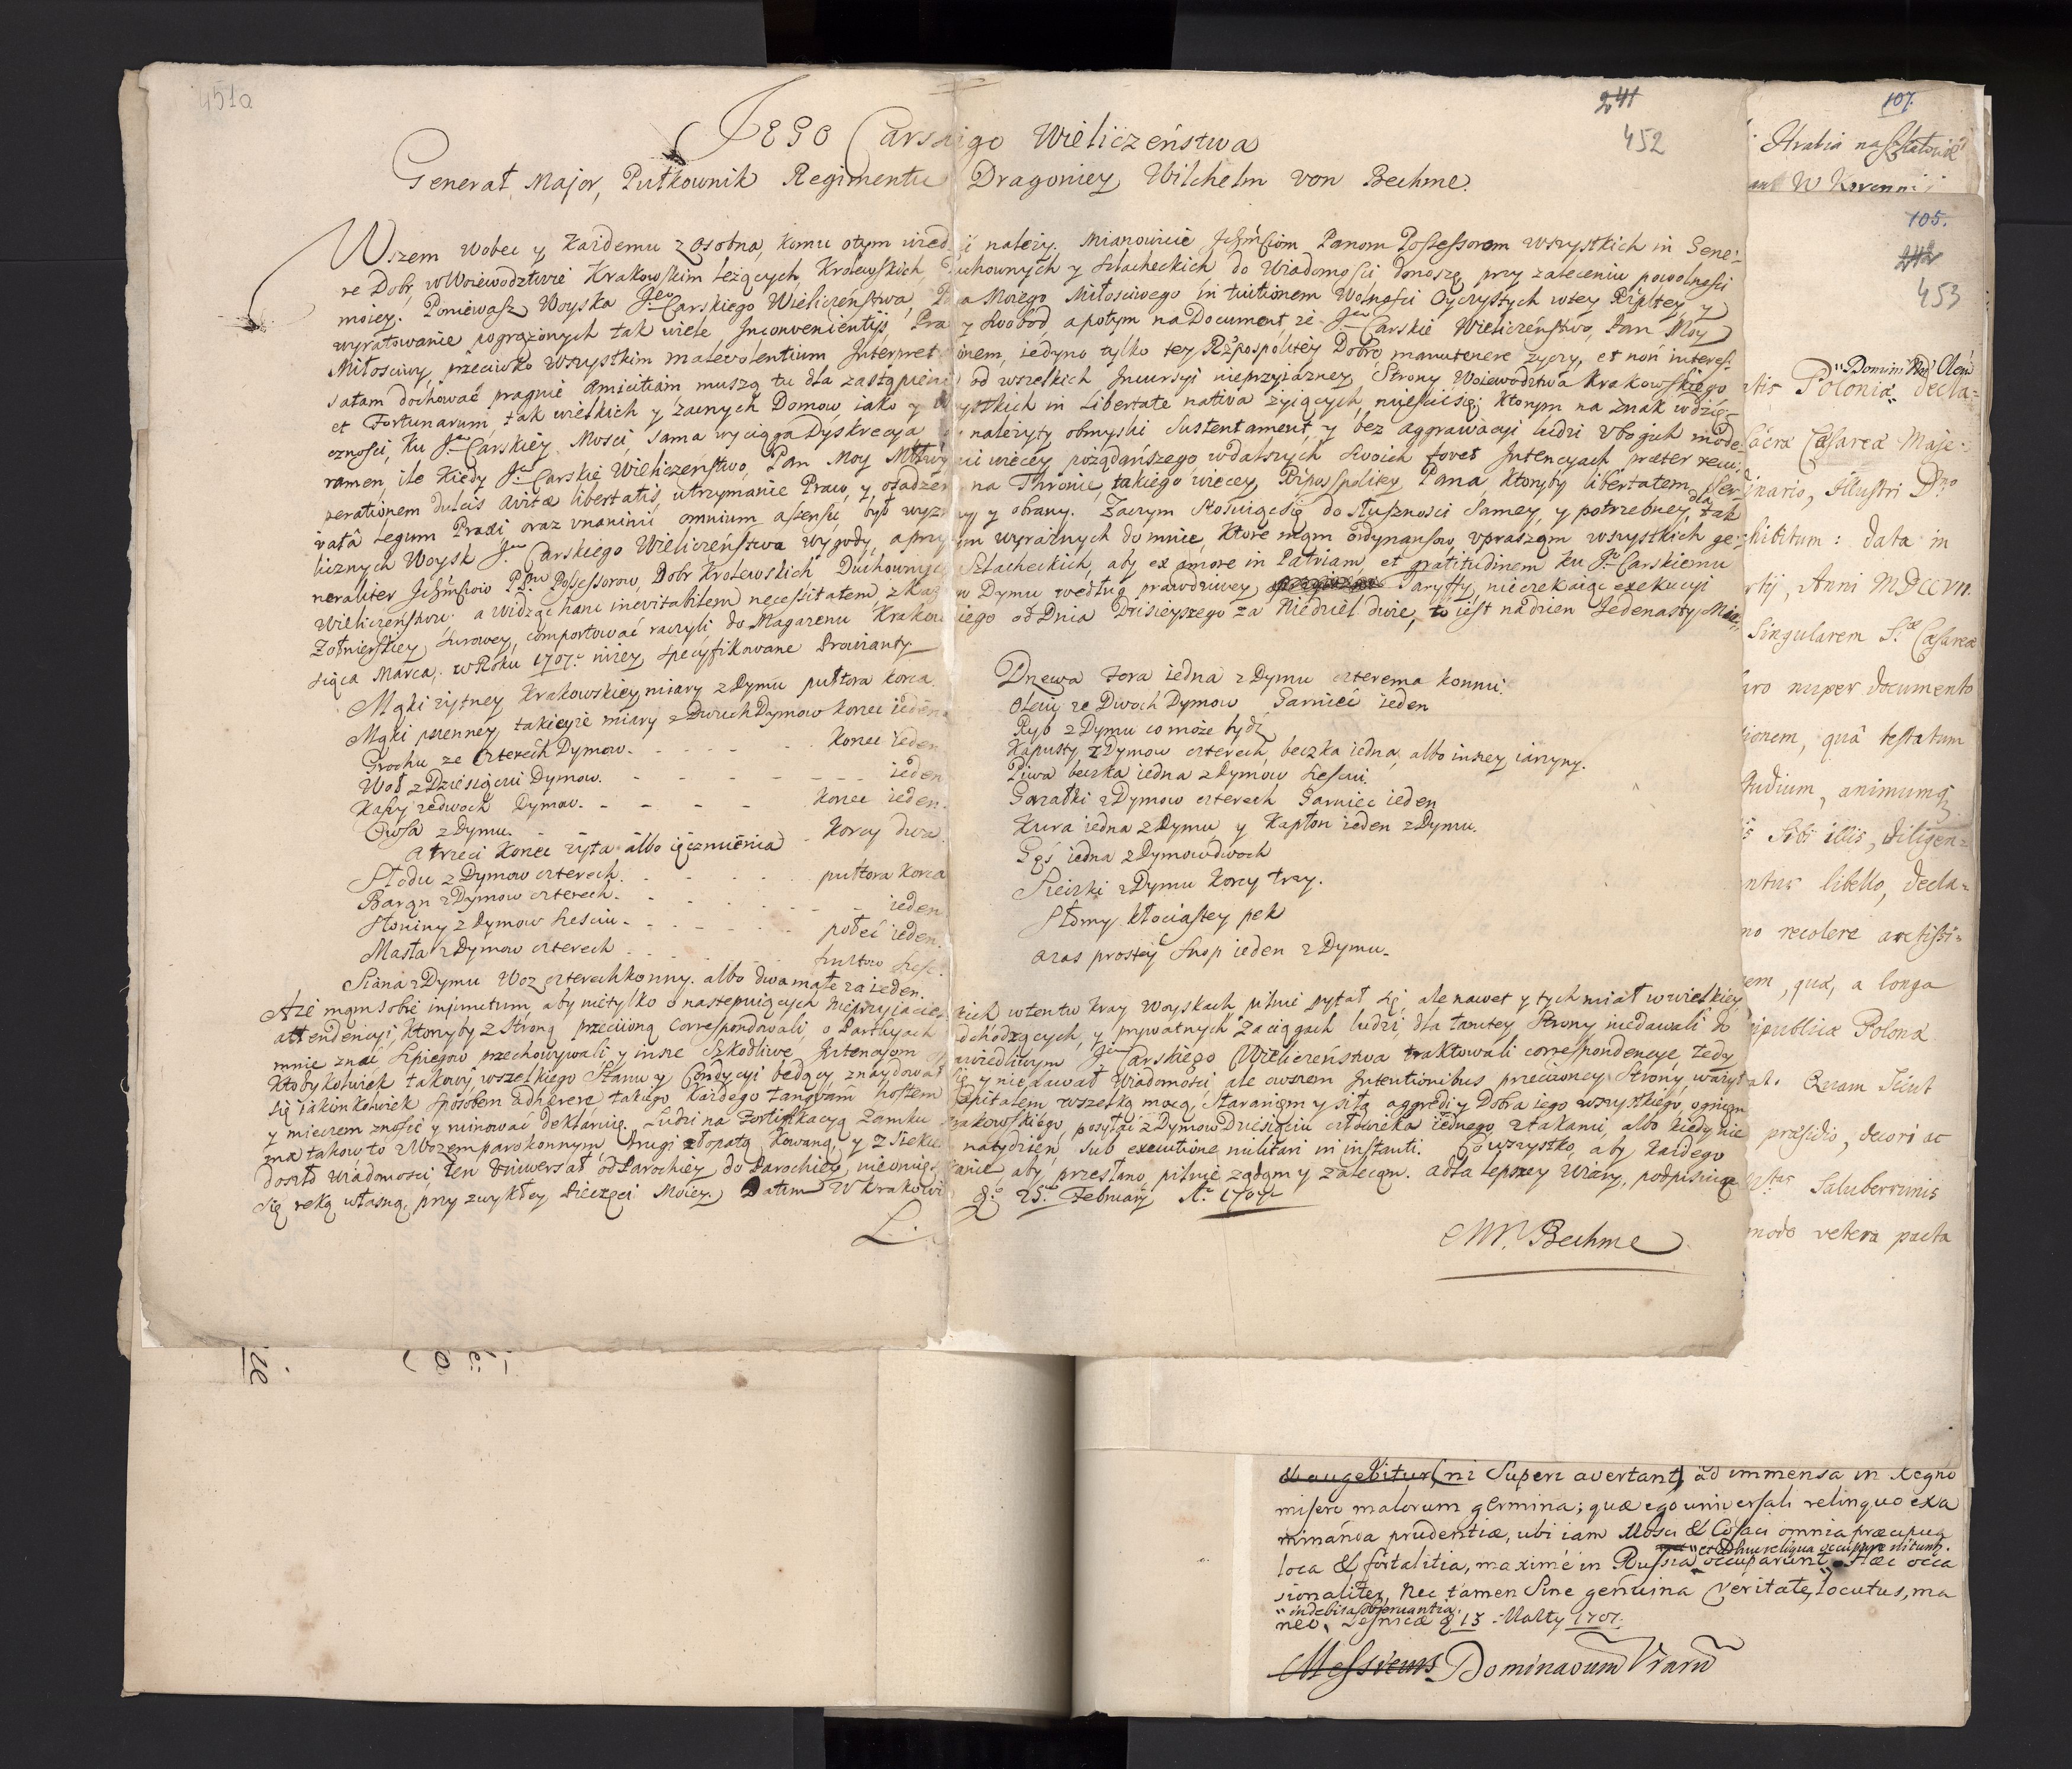 451a
241
452
Jego Carskiego Wieliczeństwa
Generał Major, Pułkownik Regimentu Dragoniey Wilchelm von Bechme.
Wszem wobec y każdemu zosobna, komu otym wiedzieć należy. Mianowicie Panom Possessorom wszystkich in Gene:
re Dobr, w Woiewodztwie Krakowskim leżących Krolewskich, Duchownych y szlacheckich do Wiadomości donoszę, przy zaleceniu powolności
moiey. Ponieważ Woyska Jego Carskiego Wieliczeństwa, Pana Moiego Miłościwego in tuitionem Wolności Oyczystych wtey Rzpltey, y
wyratowanie pogrążonych tak wiele Inconvenientijs, Praw y Swobod, apotym na Document, że Jego Carskie Wieliczeństwo, Pan Moy
Miłościwy, przeciwko Wszystkim malevolentium Interpretationem, iedyno tylko tey Rzpospolitey Dobro, manutenere życzy, et non interes:
satam dochować pragnie Amicitiam muszą tu dla zastąpienia od wszelkich Incursyi nieprzyiazney Strony Woiewodztwa Krakowskiego
et Fortunarum, tak wielkich y zacnych Domow iako y wszystkich in Libertate nativa żyiących, mieścić się; ktorym na znak wdzię-
czności, ku Jego Carskiey Mości, sama wyciąga Dyskrecya należyty obmyślić Sustentament, y bez aggrawacyi ludzi Vbogich mode-
ramen, ile kiedy Jego Carskie Wieliczeństwo, Pan Moy Miłościwy nic więcey pożądańszego wdalszych Swoich fovet Intencyach præter recu-
perationem dulcis avitæ libertatis, utrzymanie Praw, y osadzenie na Thronie, takiego więcey Rzpospolitey Pana, ktoryby libertatem Ser-
vatâ Legum Praxi oraz vnanimi omnium assensu, był y obrany. Zaczym Stosuiąc się do Słuszności Samey, y potrzebney, dla tak
licznych Woysk Jego Carskiego Wieliczeństwa wygody, a przytym wyraźnych do mnie, ktore mam ordynansow, vpraszam wszystkich ge-
neraliter Possessorow, Dobr Krolewskich, Duchownych, Szlacheckich, aby ex amore in Patriam, et gratitudinem ku Jego Carskiemu
Wieliczeństwu: a widząc hanc inevitabilem necessitatem, z każdego Dymu według prawdziwey Taryffy, nieczekaiąc exekucyi
Zołnierskiey Surowey, comportować raczyli do Magazenu Krakowskiego od Dnia Dzisieyszego za Niedziel dwie, to iest na dzien Jedenasty Mie-
siąca Marca, w Roku 1707. niżey specyfikowane Prowianty
Mąki żytney Krakowskiey miary z Dymu pułtora korca.
Mąki pszenney takieyże miary z Dwuch Dymow korzec ieden
Grochu ze czterech Dymow. - - - - - korzec ieden
Woł z Dziesiąciu Dymow. - - - - - - - ieden
Kaszy ze dwoch Dymow. - - - - korzec ieden.
Owsa z Dymu. korcy dwa
a trzeci korzec żyta albo ięczmienia
Słodu z Dymow czterech. - - - - - pułtora korca
Baran z Dymow czterech. - - - - - - ieden
Słoniny z Dymow sześciu. - - - - - - połeć ieden.
Masła z Dymow czterech - - - - - funtow sześć.
Siana z Dymu Woz czterechkonny, albo dwa małe za ieden.
Drzewa fora iedna z Dymu czterema konmi.
Oleiu ze Dwoch Dymow Garniec ieden
Ryb z Dymu co może bydź
Kapusty z Dymow czterech, beczka iedna, albo inszey iarzyny.
Piwa beczka iedna z Dymow sześciu.
Gorzałki z Dymow czterech Garniec ieden
Kura iedna z Dymu, y Kapłon ieden z Dymu.
Gęś iedna z Dymow dwoch
Sieczki z Dymu korcy trzy.
Słomy kłociastey pek
oraz prostey Snop ieden z Dymu.
A że mam sobie iniunctum, aby nietylko o nastepuiących nieprzyiacielskich wtentu kray Woyskach pilnie pytał się, ale nawet y tych miał w wielkiey
attendencyi, ktorzyby z Stroną przeciwną correspondowali, o Parthyach odchodzących, y prywatnych zaciągach ludzi, dla tamtey Strony niedawali do
mnie znać Szpiegow przechowywali, y insze Szkodliwe Intencyom sprawiedliwym Jego Carskiego Wieliczeństwa traktowali correspondencye, tedy
Ktobykolwiek takowy, wszelkiego Stanu y Condycyi będący znaydował się y niedawał Wiadomości, ale owszem Intentionibus przeciwney Strony, ważył
się iakimkolwiek Sposobem adhærere takiego każdego tanquam hostem Capitalem wszelką mocą, Staraniem y siłą aggredi y Dobra iego wszystkiego, ogniem
y mieczem znosić y ruinować deklaruię. Ludzi na Fortifikacyą Zamku Krakowskiego, posyłać z Dymow Dziesiąciu człowieka iednego, z takami, albo kiedy nie
ma takow, to z Wozem parokonnym, drugi z łopatą kowaną, y z siekierą na tydzień, Sub executione militari in instanti. Co wszystko, aby każdego
doszło Wiadomości, ten Vniwersał od Parochiey, do Parochiey nieomieszkanie, aby przesłano, pilnie żądam y zalecam. A dla lepszey Wiary, podpisuię
Się ręką własną, przy zwykłey Pieczęci Moiey. Datum W Krakowie d. 25. February A. 1707
L.
W. Bechme
107.
Hrabia na
W Korenni
105.
242
453
Polonia, decla=
Sacræ Cæsareæ Maje:
dinario, Illustri Dno
hibitum: data in
rtij, Anni MDCCVII.
Singularem S. Cæsareæ
nuper documento
ionem, quâ testatum
tudium, animumq;
illis, diligen=
ntur libello, decla=
no recolere arctissi=
em, quæ, a longa
ipublicæ Polonæ
at. Quam Sicut
præsidio, decori ac
Saluberrimis
modo vetera pacta
& augebitur, (ni Superi avertant) ad immensa in Regno
misero malorum germina; quæ ego universali relinquo exa
minanda prudentiæ, ubi iam Mosci & Cosaci omnia præcipua
et adhuc reliqua occupare nitunt.
loca & fortalitia, maximè in Russia occuparunt. Hæc occa
sionaliter, nec tamen Sine genuina Veritate, locutus, ma
in debita observantia
neo, Lesnicæ d 13 Marty 1707.
Messieurs Dominaoum Vrarū